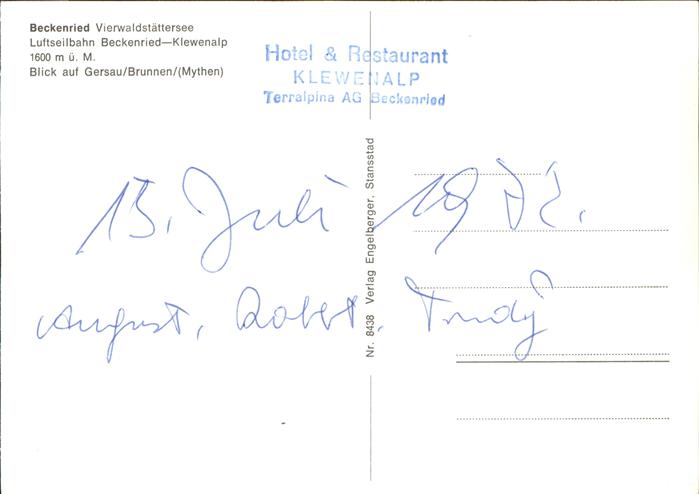 Beckenried Vierwaldstättersee
Luftseilbahn Beckenried—Klewenalp
1600 m ü. M.
Blick auf Gersau/Brunnen/(Mythen)
Hotel & Restaurant
KLEWENALP
Terralpina AG Beckenried
15. Juli 1972.
August, Robert, Trudy
Nr. 8438 Verlag Engelberger, Stansstad